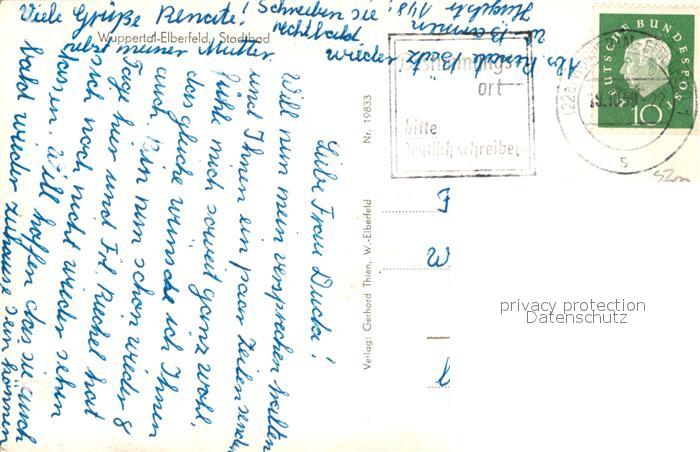 Viele Grüße Renate! Schreiben sie
recht bald
nebst meiner Mutter. wieder
Wuppertal-Elberfeld, Stadtbad
Abs. Renate
Liebe Frau Ducka!
Will nun mein versprechen halten
und Ihnen ein paar Zeilen senden
fühle mich soweit ganz wohl,
das gleiche wünsche ich Ihnen
auch. Bin nun schon wieder 8
Tage hier und Frl. Küchel hat
sich noch nicht wieder sehn
lassen. Will hoffen das sie auch
bald wieder zuhause sein können
Nr. 19833
Verlag: Gerhard Thien, W.-Elberfeld
Bestimmungs-
ort
bitte
deutlich schreiben
DEUTSCHE BUNDESPOST
10
F
M
privacy protection
Datenschutz